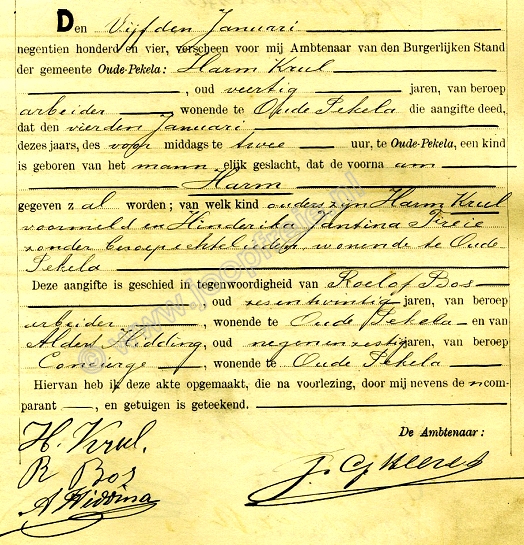 Den Vijfden Januari
negentien honderd en vier, verscheen voor mij Ambtenaar van den Burgerlijken Stand
der gemeente Oude-Pekela: Harm Krul
, oud veertig jaren, van beroep
arbeider wonende te Oude Pekela die aangifte deed,
dat den vierden Januari
dezes jaars, des voor middags te twee uur, te Oude-Pekela, een kind
is geboren van het mann elijk geslacht, dat de voorna am
Harm
gegeven z al worden; van welk kind ouders zijn Harm Krul
voormeld en Hinderika Jantina Freie
zonder beroep echtelieden wonende te Oude
Pekela
Deze aangifte is geschied in tegenwoordigheid van Roelof Bos
, oud zesentwintig jaren, van beroep
arbeider, wonende te Oude Pekela en van
Aldert Hidding, oud negenenzestig jaren, van beroep
Concierge, wonende te Oude Pekela
Hiervan heb ik deze akte opgemaakt, die na voorlezing, door mij nevens de n com-
parant, en getuigen is geteekend.
De Ambtenaar:
H. Krul.
R Bos
A Hidding
© www.jpophuis.nl